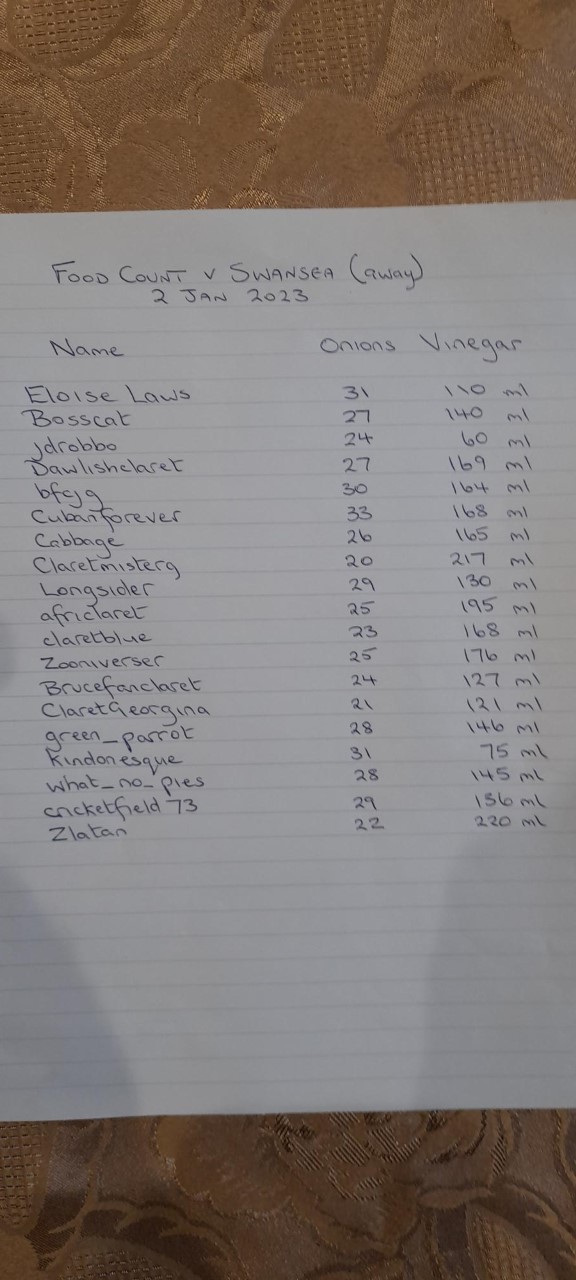 FOOD COUNT V SWANSEA (away)
2 JAN 2023
Name Onions Vinegar
Eloise Laws 31 110 ml
Bosscat 27 140 ml
jdrobbo 24 60 ml
Dawlishclaret 27 169 ml
bfcjg 30 164 ml
Cubanforever 33 168 ml
Cabbage 26 165 ml
Claretmisterg 20 217 ml
Longsider 29 130 ml
africlaret 25 195 ml
claretblue 23 168 ml
Zooniverser 25 176 ml
Brucefanclaret 24 127 ml
ClaretGeorgina 21 121 ml
green_parrot 28 146 ml
Kindonesque 31 75 ml
what_no_pies 28 145 ml
cricketfield 73 29 136 ml
Zlatan 22 220 ml